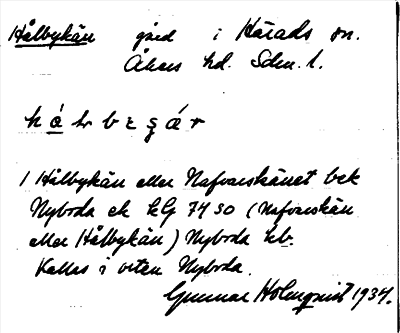 Hålbykän gård i Härads sn.
Åkers hd. Sdm. l.
1 Hålbykän eller Nafvarskänet bek
Nybroda ek kG 7450 (Nafvarskän
eller Hålbykän) Nybroda kb.
Kallas i orten Nybroda.
Gunnar Holmqvist 1934.